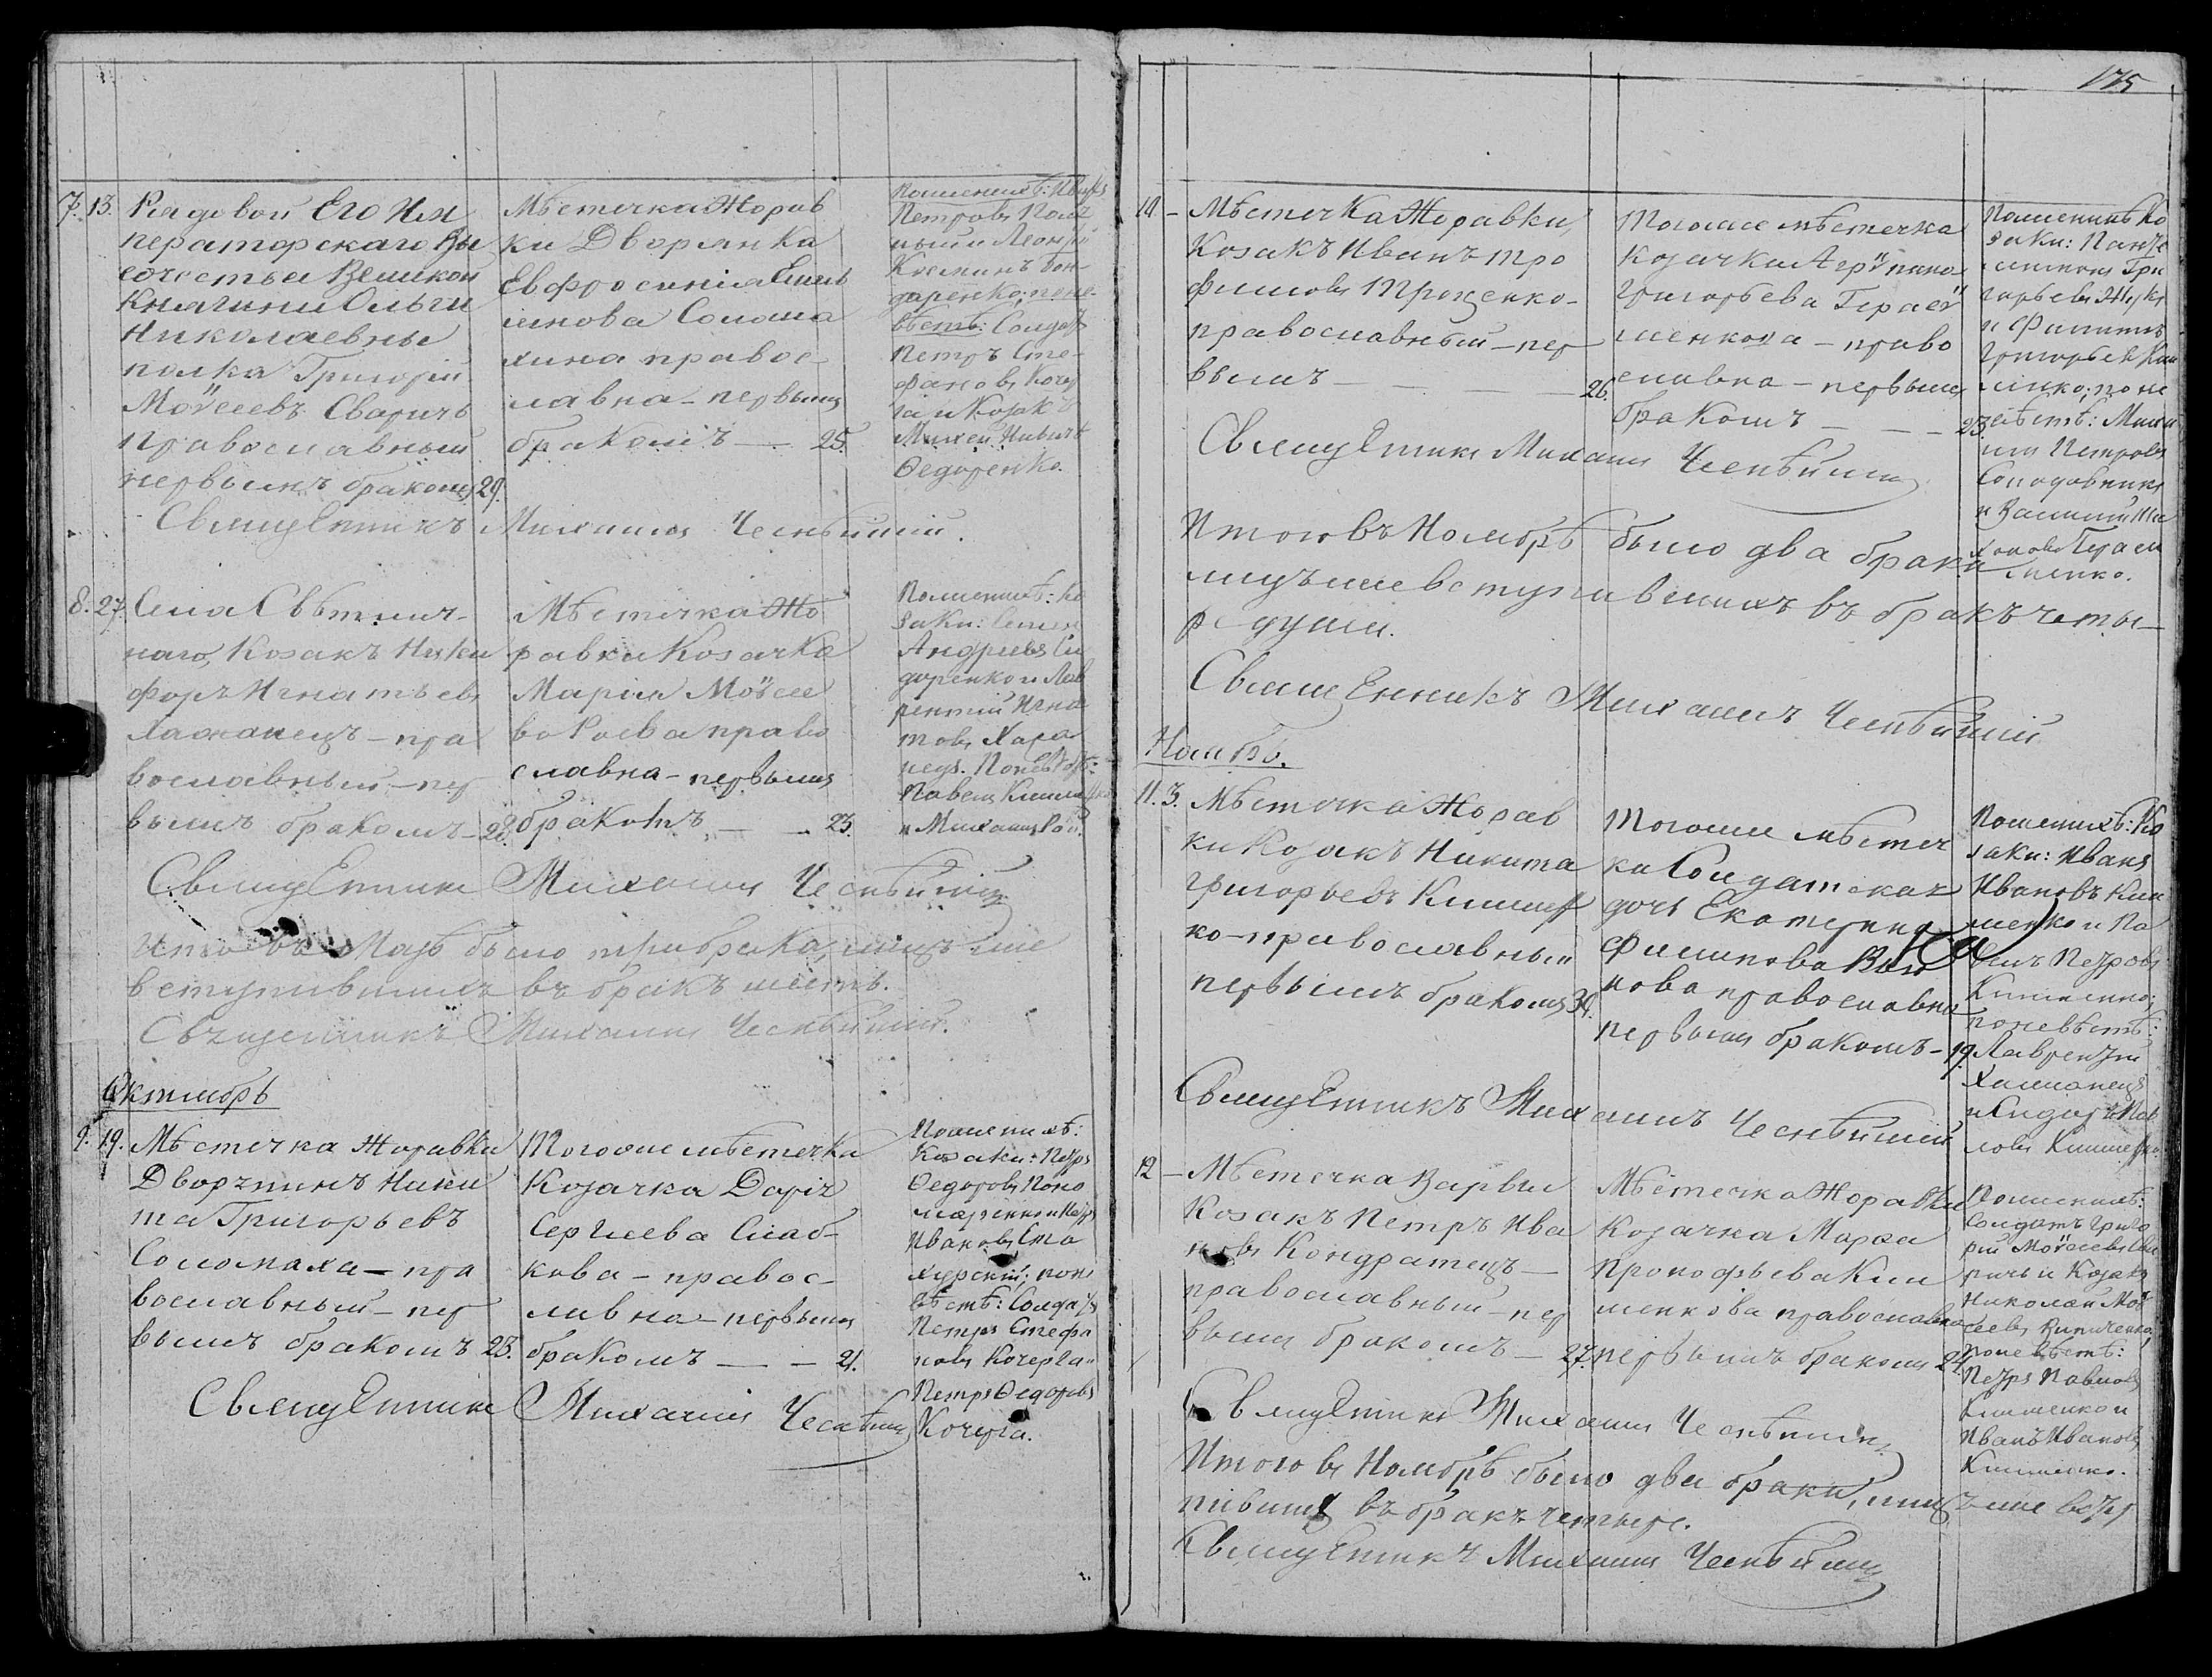 7. 13. Рядовой Его Им
ператорскаго Вы
сочества Великой
Княгини Ольги
Николаевны
полка Григорій
Моѵсеевъ Сваричъ
православный
первымъ бракомъ 29.
Мѣстечка Жорав
ки Дворянка
Евфросинія Емель
янова Солома
хина правос-
лавна – первымъ
бракомъ — 25.
Петровъ
Козминъ Бон-
даренко; поне-
вѣстѣ: Солдатъ
Петръ Сте-
фановъ Кочер
га и Козакъ
Федоренко.
Священникъ Михаилъ Чеснѣйшій.
8. 27. Села Свѣтлич-
наго, Козакъ Ники
форъ Игнатьевъ
пра
вославный – пер
вымъ бракомъ – 28.
Мѣстечка Жо
равки Козачка
Марія Моѵсее
ва Роева право
славна – первымъ
бракомъ — 23.
По женихѣ: Ко
заки: Семенъ
Андріевъ Си
доренко и Лав
рентій Игна
товъ
Поневѣстѣ:
Павелъ
и Михаилъ Рой.
Священникъ Михаилъ Чеснѣйшій
Итого въ Маѣ было три брака, лицъ же
вступившихъ въ бракъ шесть.
Священникъ Михаилъ Чеснѣйшій.
Октябрь
9. 19. Мѣстечка Жоравки
Дворянинъ Ники
та Григорьевъ
Соломаха – пра
вославный – пер
вымъ бракомъ 23.
Тогоже мѣстечка
Козачка Дарія
Сергіева Слаб-
кова – правос-
лавна – первымъ
бракомъ — 21.
По женихѣ:
Козаки: Петръ
Федоровъ Поно
маренко и Петръ
Ивановъ Ста
хурскій; поне
вѣстѣ: Солдатъ
Петръ Стефа
новъ Кочерга и
Петръ Федоровъ
Кочерга.
Священникъ Михаилъ Чеснѣйшій
175
10 – Мѣстечка Жоравки,
Козакъ Иванъ Тро
фимовъ Троценко –
православный – пер
вымъ — 26.
Тогоже мѣстечка
Козачка Агрѵпина
Григорьева Гераси
менкова – право
славна – первымъ
бракомъ — 23.
По женихѣ Ко
заки:
Гри
горьевъ
и Филиппъ
Григорьевъ Кли
менко; по не
вѣстѣ: Миха
илъ Петровъ
Солодовникъ
и Василій
Гераси
менко.
Священникъ Михаилъ Чеснѣйшій
Итого въ Ноябрѣ было два брака
лицъ же вступившихъ въ бракъ четы–
ре души.
Священникъ Михаилъ Чеснѣйшій
Ноябр.
11. 3. Мѣстечка Жорав
ки Козакъ Никита
Григорьевъ Климен
ко – православный
первымъ бракомъ 30.
Тогоже мѣстеч
ка Солдатская
дочь Екатерина
Филипова
нова православна
первымъ бракомъ – 19.
По женихѣ: Ко
заки: Иванъ
Ивановъ Кли
менко и Па
велъ Петровъ
Клименко;
поневѣстѣ:
Лаврентій
и Сидоръ Пав
ловъ Клименко.
Священникъ Михаилъ Чеснѣйшій
12 – Мѣстечка Варвы
Козакъ Петръ Ива
новъ Кондратецъ —
православный – пер
вымъ бракомъ — 27.
Мѣстечка Жоравки
Козачка Марѳа
Прокофьева Кли
менкова православна
первымъ бракомъ 24.
По женихѣ:
Солдатъ Григо
рій Моѵсеевъ Сва
ричъ и Козакъ
Николай Моѵ
сеевъ
поневѣстѣ:
Петръ Павловъ
Клименко и
Иванъ Ивановъ
Клименко.
Священникъ Михаилъ Чеснѣйшій
Итого въ Ноябрѣ было два брака, лицъ же всту
пившихъ въ бракъ четыре.
Священникъ Михаилъ Чеснѣйшій